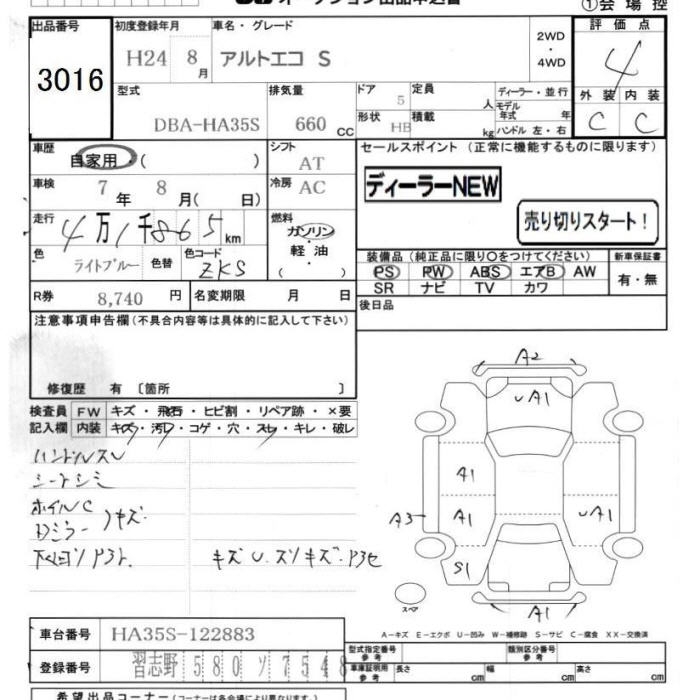 出品番号
3016
初度登録年月
H24 8月
車名・グレード
アルトエコ S
2WD
・
4WD
①会場控
評価点
4
外装 内装
C C
型式
DBA-HA35S
排気量
660 CC
ドア
5
定員
人
形状
HB
積載
kg
ディーラー・並行
モデル年式 年
ハンドル 左・右
車歴
自家用 ( )
シフト
AT
車検
7年 8月( 日)
冷房
AC
走行
4万1千865km
燃料
ガソリン
・
軽油
( )
色
ライトブルー
色替
色コード
ZKS
R券
8,740 円
名変期限 月 日
セールスポイント (正常に機能するものに限ります)
ディーラーNEW
売り切りスタート!
装備品 (純正品に限り○をつけてください)
PS PW ABS エアB AW
SR ナビ TV カワ
新車保証書
有・無
後日品
注意事項申告欄 (不具合内容等は具体的に記入して下さい)
修復歴 有 〔箇所 〕
検査員記入欄
FW キズ・飛石・ヒビ割・リペア跡・×要
内装 キズ・汚レ・コゲ・穴・スレ・キレ・破レ
ハンドルスレ
シートシミ
ホイルC
Dミラー キズ
キズU.ズリキズ・
A2
UA1
A1
A1
UA1
A3
S1
A1
スペア
A-キズ E-エクボ U-凹み W-補修跡 S-サビ C-腐食 XX-交換済
車台番号
HA35S-122883
登録番号
習志野 580 ソ 7548
型式指定番号
参考
類別区分番号
参考
車庫証明用
参考
長さ cm
幅 cm
高さ cm
希望出品コーナー (コーナーは各会場により異なります。)